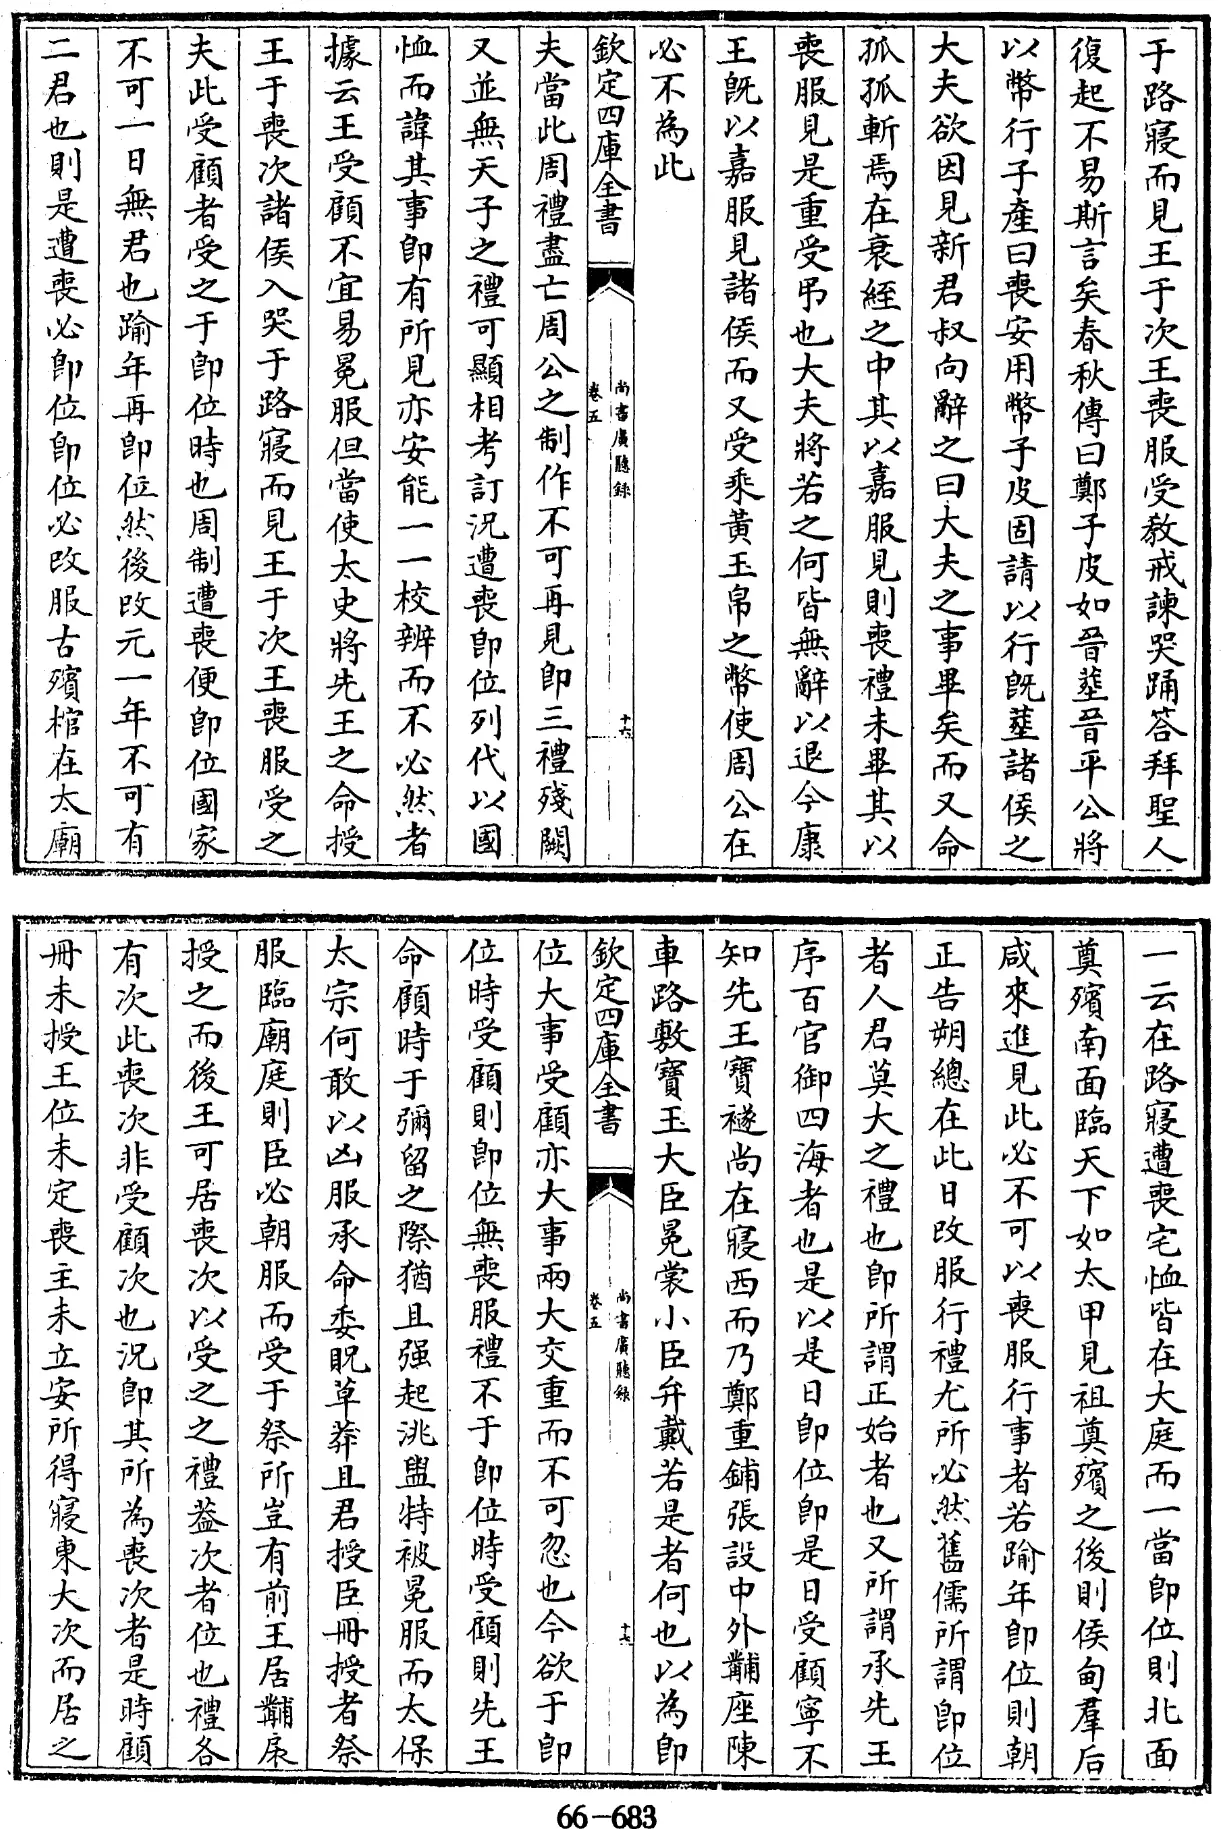 于路寢而見王于次王喪服受教戒諫哭踊答拜聖人
復起不易斯言矣春秋傳曰鄭子皮如晉塟晉平公將
以幣行子產曰喪安用幣子皮固請以行既塟諸侯之
大夫欲因見新君叔向辭之曰大夫之事畢矣而又命
孤孤斬焉在衰絰之中其以嘉服見則喪禮未畢其以
喪服見是重受弔也大夫將若之何皆無辭以退今康
王既以嘉服見諸侯而又受乘黃玉帛之幣使周公在
必不為此
欽定四庫全書
尚書廣聽録
卷五
十六
夫當此周禮盡亡周公之制作不可再見即三禮殘闕
又並無天子之禮可顯相考訂況遭喪即位列代以國
恤而諱其事即有所見亦安能一一校辨而不必然者
據云王受顧不宜易冕服但當使太史將先王之命授
王于喪次諸侯入哭于路寢而見王于次王喪服受之
夫此受顧者受之于即位時也周制遭喪便即位國家
不可一日無君也踰年再即位然後改元一年不可有
二君也則是遭喪必即位即位必改服古殯棺在太廟
一云在路寢遭喪宅恤皆在大庭而一當即位則北面
奠殯南面臨天下如太甲見祖奠殯之後則侯甸羣后
咸來進見此必不可以喪服行事者若踰年即位則朝
正告朔總在此日改服行禮尤所必然舊儒所謂即位
者人君莫大之禮也即所謂正始者也又所謂承先王
序百官御四海者也是以是日即位即是日受顧寧不
知先王寶襚尚在寢西而乃鄭重鋪張設中外黼座陳
車路敷寶玉大臣冕裳小臣弁戴若是者何也以為即
欽定四庫全書
尚書廣聽録
卷五
十七
位大事受顧亦大事兩大交重而不可忽也今欲于即
位時受顧則即位無喪服禮不于即位時受顧則先王
命顧時于彌留之際猶且强起洮盥特被冕服而太保
太宗何敢以凶服承命委貺草莽且君授臣冊授者祭
服臨廟庭則臣必朝服而受于祭所豈有前王居黼扆
授之而後王可居喪次以受之之禮葢次者位也禮各
有次此喪次非受顧次也況即其所為喪次者是時顧
冊未授王位未定喪主未立安所得寢東大次而居之
66-683